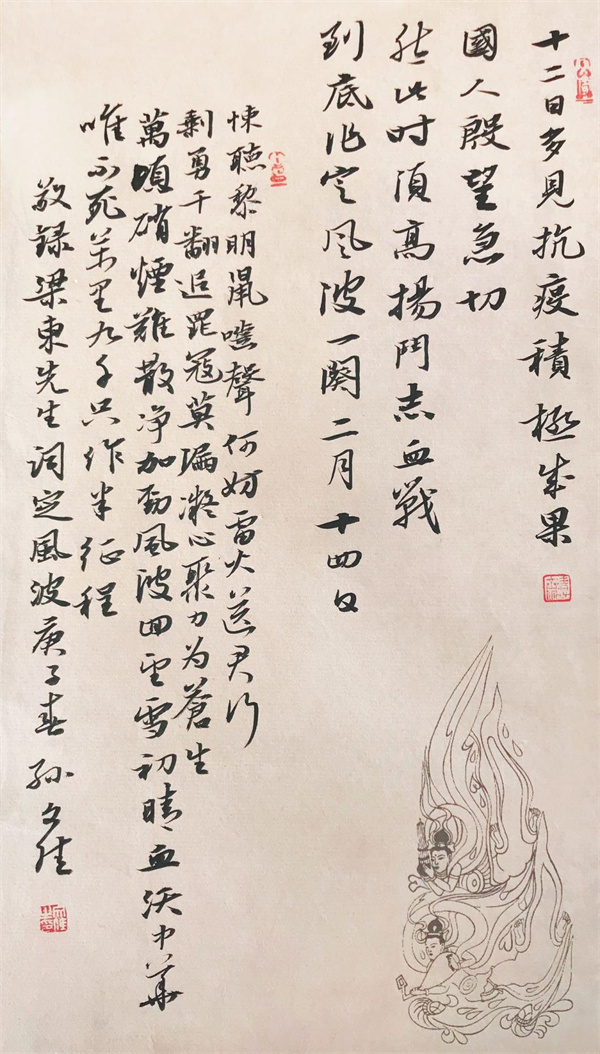 十二日多見抗疫積極成果
國人殷望急切
然此时須高揚鬥志血戰
到底作定风波一闋二月十四日
悚聽黎明鼠聲何妨雷火送君行
剩勇千翻追罷寇莫凝心聚力为蒼生
萬頃硝煙難散净加勁風波回望雪初晴血沃中華
唯不死萬里九千只作半征程
敬録梁東先生詞定風波庚子春孫文佳